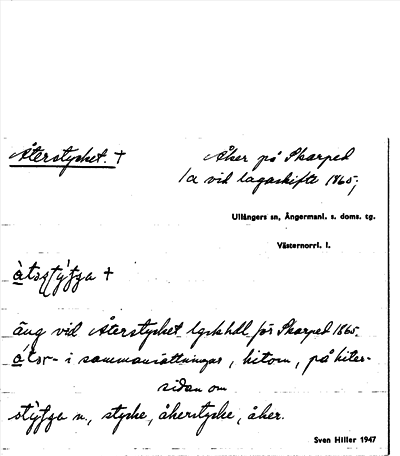 Återstycket. †
Åker på Skarped
1a vid lagaskifte 1865;
Ullångers sn, Ångermanl. s. doms. tg.
Västernorrl. l.
äng vid Återstycket lgskhdl för Skarped 1865.
i sammansättningar, hitom, på hiter-
sidan om
n., stycke, åkerstycke, åker.
Sven Hiller 1947